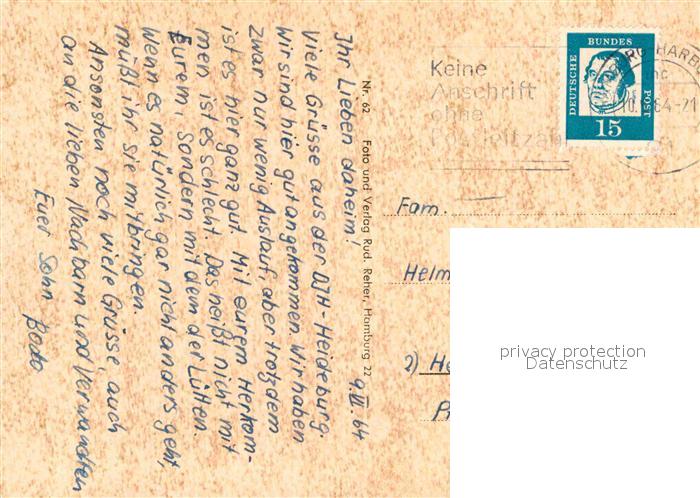 9.III.64
Ihr Lieben daheim!
Viele Grüsse aus der DJH-Heideburg.
Wir sind hier gut angekommen. Wir haben
zwar nur wenig Auslauf, aber trotzdem
ist es hier ganz gut. Mit eurem Herkom-
men ist es schlecht. Das heißt nicht mit
Eurem, sondern mit dem der Lütten.
Wenn es natürlich gar nicht anders geht,
müßt ihr sie mitbringen.
Ansonsten noch viele Grüsse, auch
an die lieben Nachbarn und Verwandten
Euer Sohn Bodo
Nr. 62 Foto und Verlag Rud. Reher, Hamburg 22
Keine
Anschrift
ohne
DEUTSCHE
BUNDES
POST
15
Fam.
Helm
2) H
privacy protection
Datenschutz